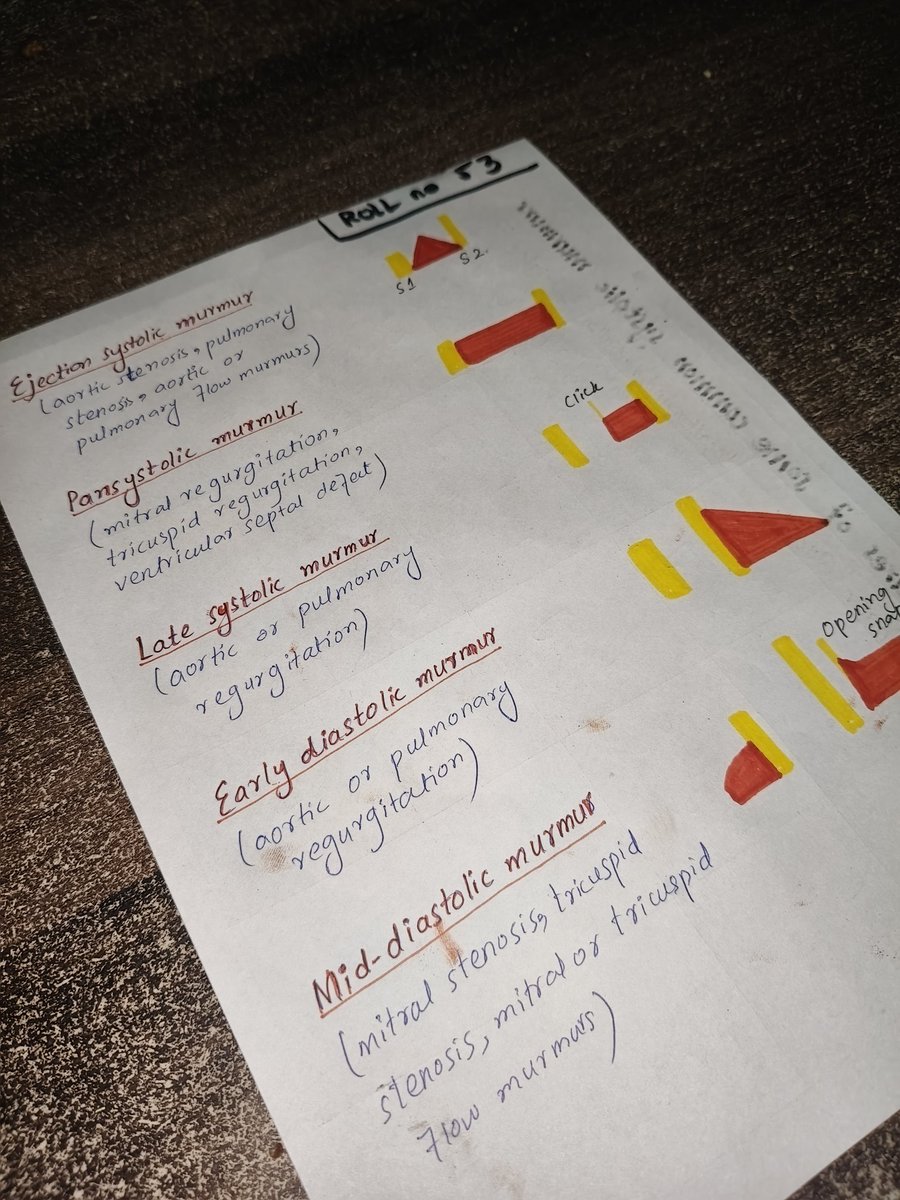 Roll no 53
S1
S2
Ejection systolic murmur
(aortic stenosis, pulmonary
stenosis, aortic or
pulmonary flow murmurs)
Pansystolic murmur
(mitral regurgitation,
tricuspid regurgitation,
ventricular septal defect)
Click
Late systolic murmur
(aortic or pulmonary
regurgitation)
Early diastolic murmur
(aortic or pulmonary
regurgitation)
Opening
snap
Mid-diastolic murmur
(mitral stenosis, tricuspid
stenosis, mitral or tricuspid
flow murmurs)